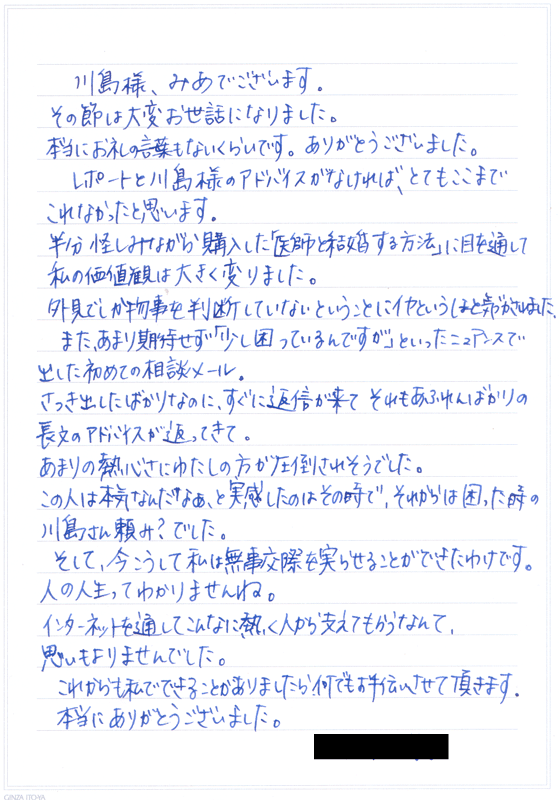 川島様、みあでございます。
その節は大変お世話になりました。
本当にお礼の言葉もないくらいです。ありがとうございました。
レポートと川島様のアドバイスがなければ、とてもここまで
これなかったと思います。
半分怪しみながら購入した「医師と結婚する方法」に目を通して
私の価値観は大きく変りました。
外見でしか物事を判断していないということにイヤというほど気づかされました。
また、あまり期待せず「少し困っているんですが」といったニュアンスで
出した初めての相談メール。
さっき出したばかりなのに、すぐに返信が来て それもあふれんばかりの
長文のアドバイスが返ってきて。
あまりの熱心さにわたしの方が圧倒されそうでした。
この人は本気なんだなぁ、と実感したのはその時で、それからは困った時の
川島さん頼み?でした。
そして、今こうして私は無事交際を実らせることができたわけです。
人の人生ってわかりませんね。
インターネットを通してこんなに熱く人から支えてもらうなんて、
思いもよりませんでした。
これからも私でできることがありましたら何でもお手伝いさせて頂きます。
本当にありがとうございました。
GINZA ITO-YA